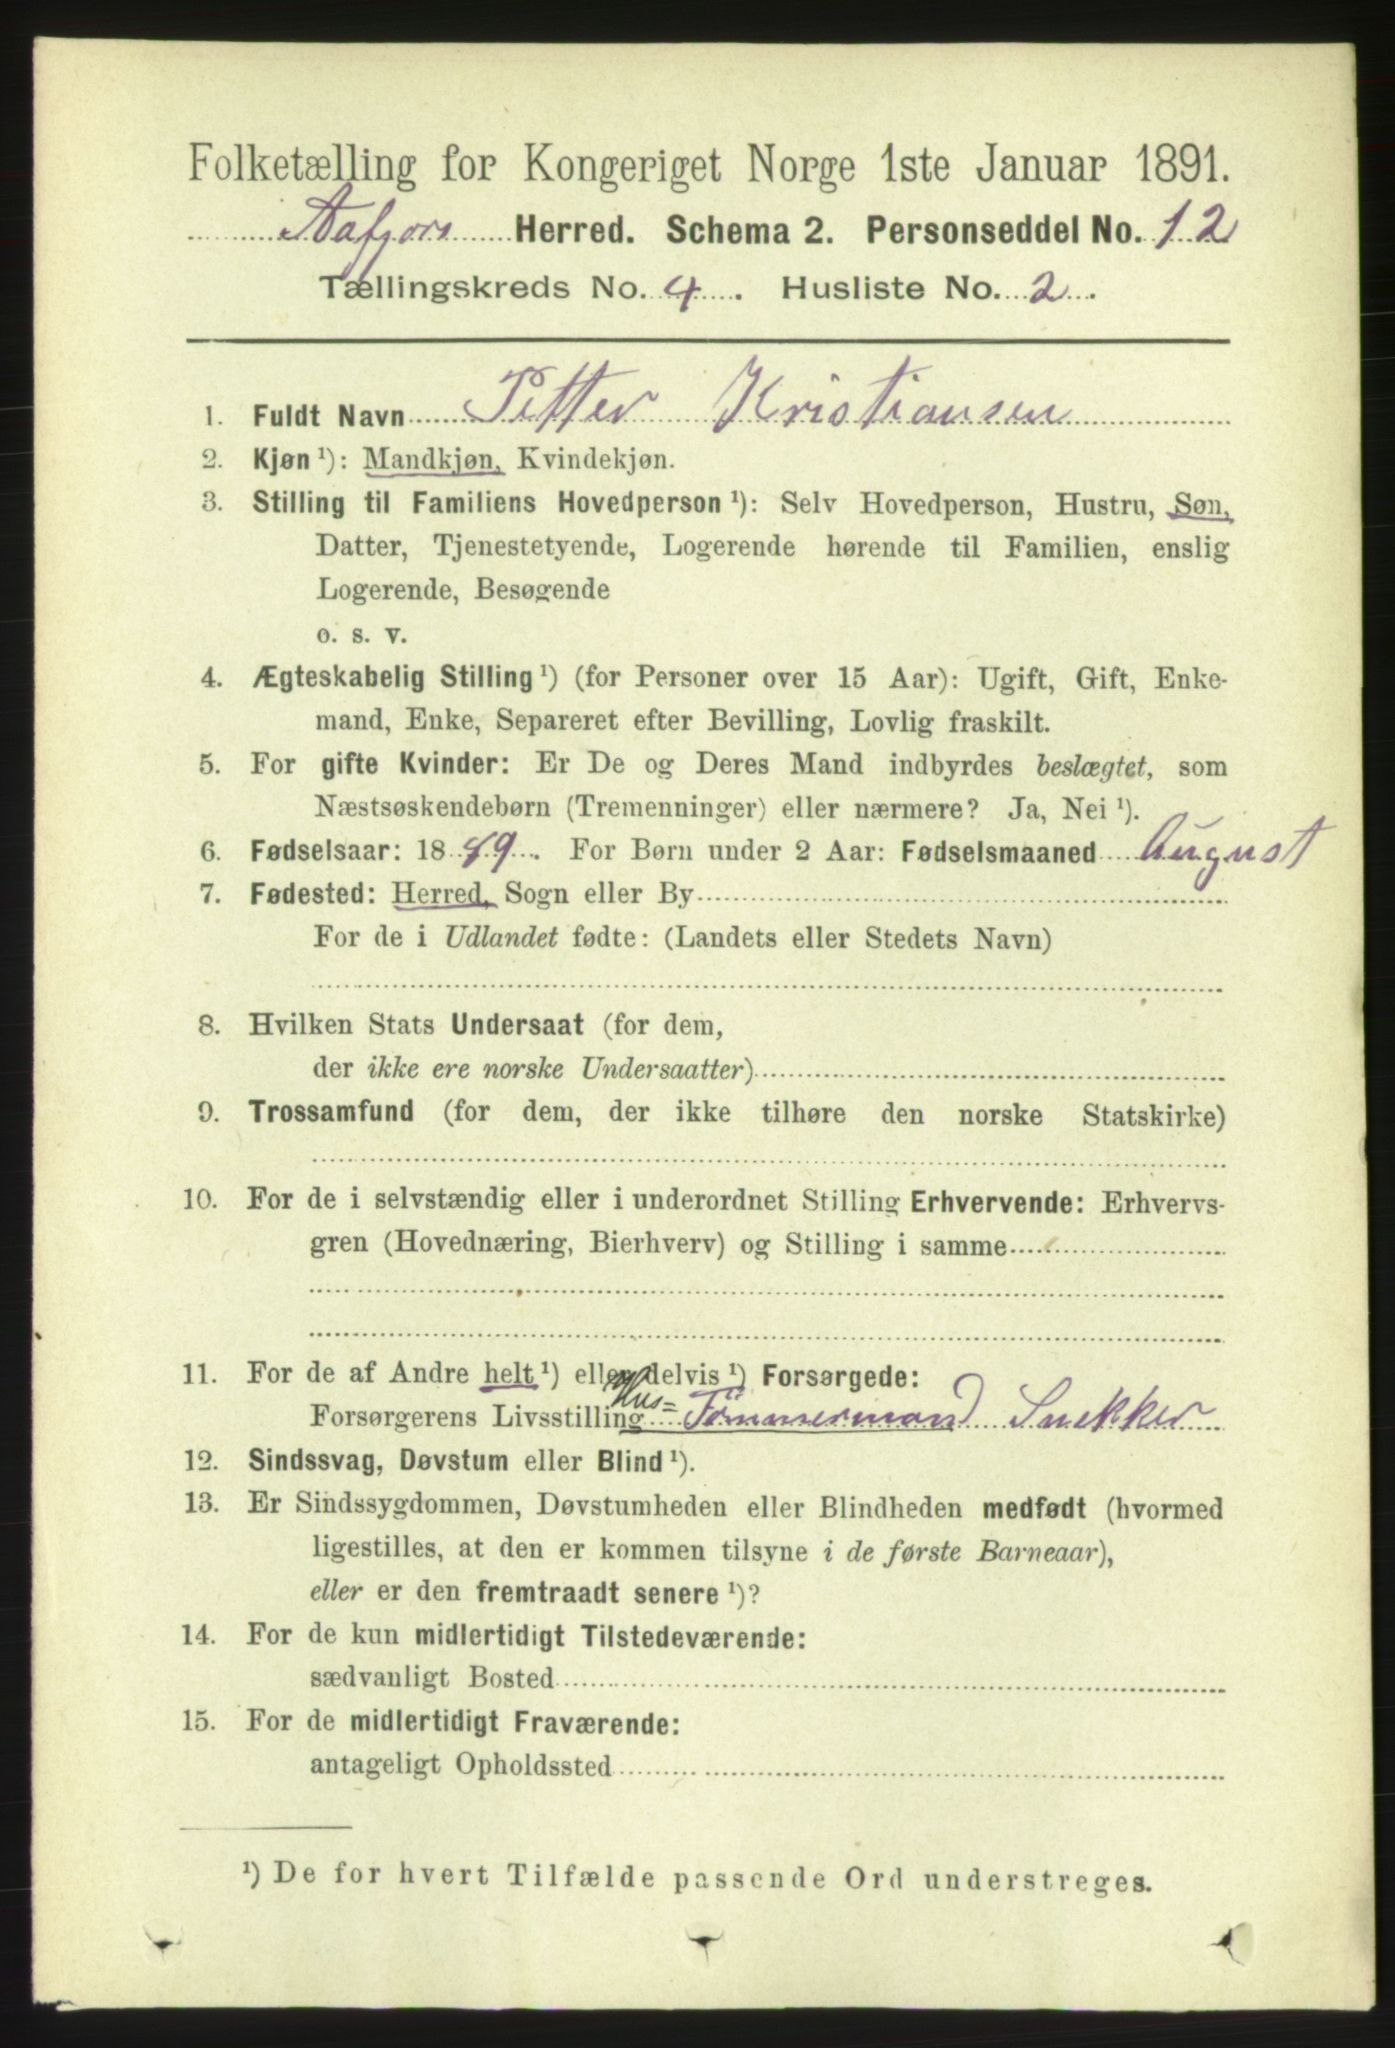 Folketælling for Kongeriget Norge 1ste Januar 1891.
Aafjord Herred. Schema 2. Personseddel No. 12
Tællingskreds No. 4. Husliste No. 2.
1. Fuldt Navn Petter Kristiansen
2. Kjøn ¹): Mandkjøn, Kvindekjøn.
3. Stilling til Familiens Hovedperson ¹): Selv Hovedperson, Hustru, Søn,
Datter, Tjenestetyende, Logerende hørende til Familien, enslig
Logerende, Besøgende
o. s. v.
4. Ægteskabelig Stilling ¹) (for Personer over 15 Aar): Ugift, Gift, Enke-
mand, Enke, Separeret efter Bevilling, Lovlig fraskilt.
5. For gifte Kvinder: Er De og Deres Mand indbyrdes beslægtet, som
Næstsøskendebørn (Tremenninger) eller nærmere? Ja, Nei ¹).
6. Fødselsaar: 1889. For Børn under 2 Aar: Fødselsmaaned August
7. Fødested: Herred, Sogn eller By
For de i Udlandet fødte: (Landets eller Stedets Navn)
8. Hvilken Stats Undersaat (for dem,
der ikke ere norske Undersaatter)
9. Trossamfund (for dem, der ikke tilhøre den norske Statskirke)
10. For de i selvstændig eller i underordnet Stilling Erhvervende: Erhvervs-
gren (Hovednæring, Bierhverv) og Stilling i samme
11. For de af Andre helt ¹) eller delvis ¹) Forsørgede:
Forsørgerens Livsstilling Hus= Tømmermand Snekker
12. Sindssvag, Døvstum eller Blind ¹).
13. Er Sindssygdommen, Døvstumheden eller Blindheden medfødt (hvormed
ligestilles, at den er kommen tilsyne i de første Barneaar),
eller er den fremtraadt senere ¹)?
14. For de kun midlertidigt Tilstedeværende:
sædvanligt Bosted
15. For de midlertidigt Fraværende:
antageligt Opholdssted
¹) De for hvert Tilfælde passende Ord understreges.